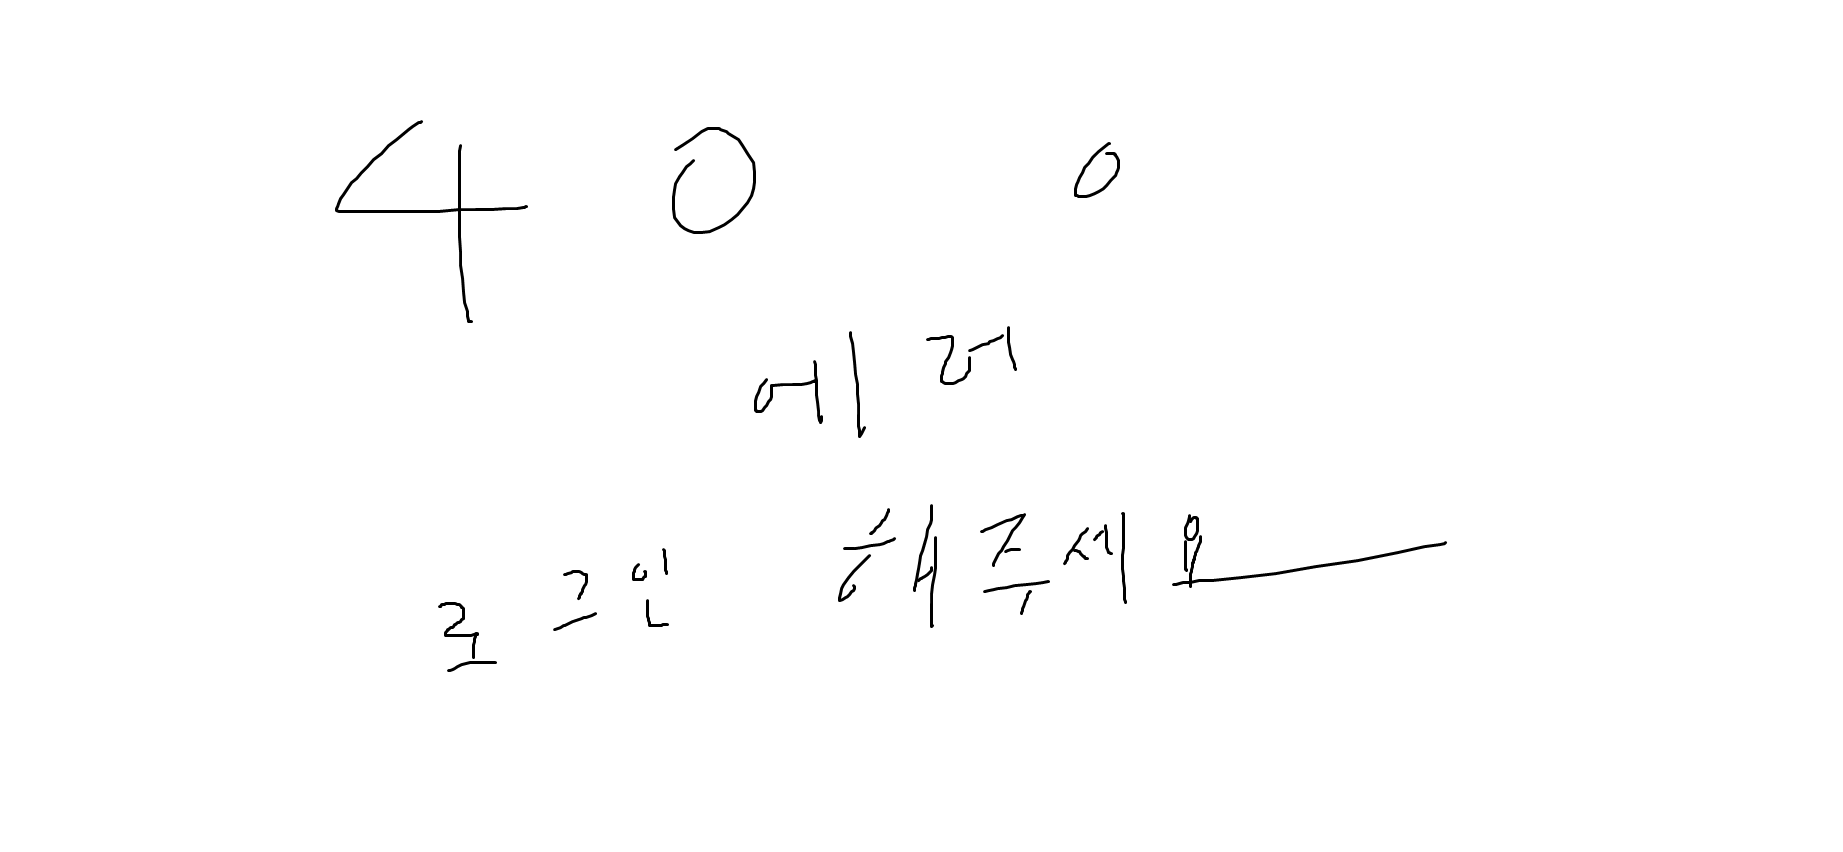 4 0 0
에러
로그인 해주세요